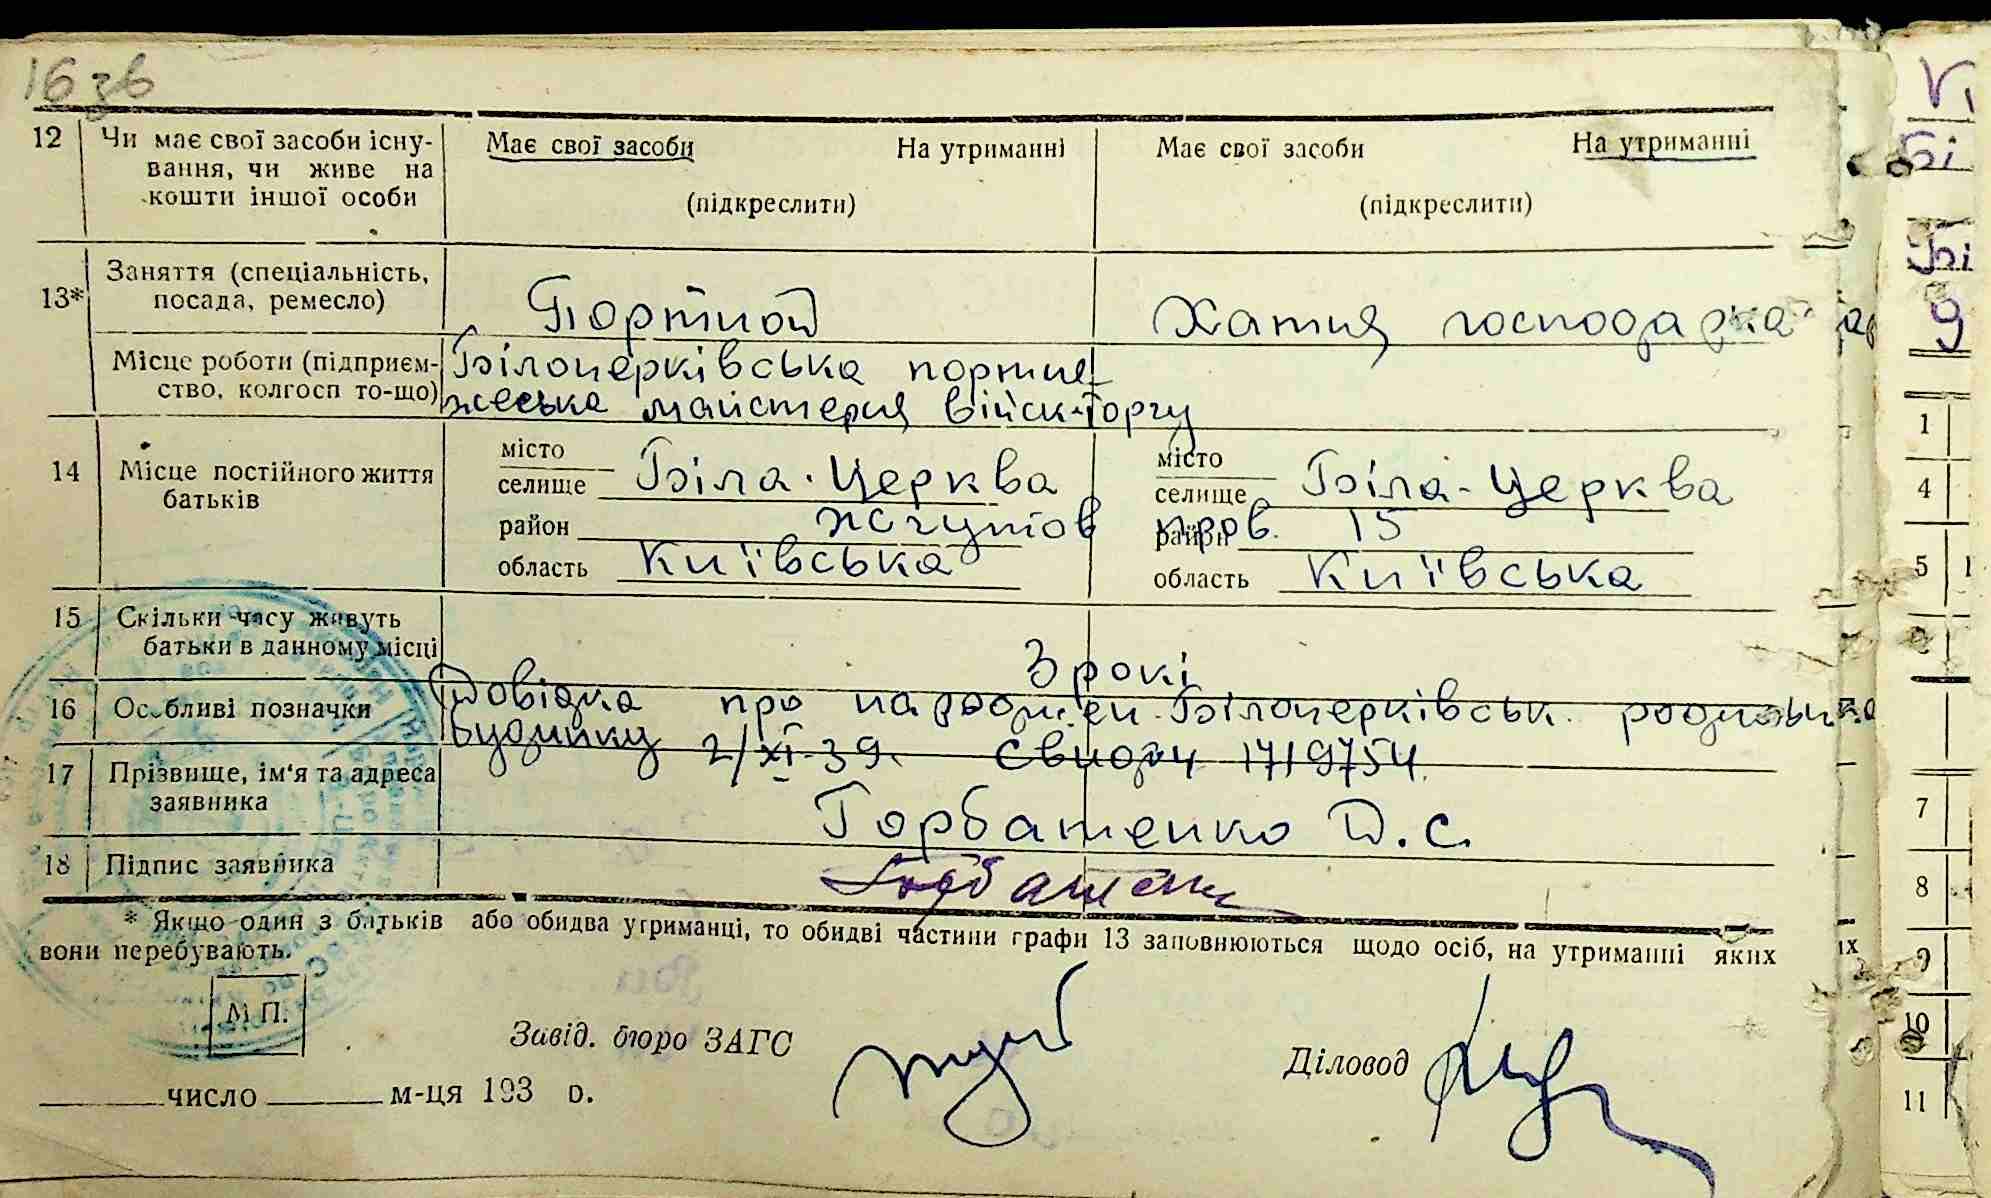 16 зв
12 Чи має свої засоби існу- Має свої засоби На утриманні Має свої засоби На утриманні
вання, чи живе на
кошти іншої особи (підкреслити) (підкреслити)
Заняття (спеціальність,
13* посада, ремесло) Портной Хатня господарка
Місце роботи (підприєм- Білоцерківська портня
ство, колгосп то-що) жеська майстерня військ-торгу
14 Місце постійного життя місто Біла-Церква місто Біла-Церква
батьків селище селище
район пров. 15
область Київська область Київська
15 Скільки часу живуть
батьки в данному місці 3 рокі
16 Особливі позначки Довідка про народжен. Білоцерківськ. родильн
будинку 2/XI-39. 1719754
17 Прізвище, ім'я та адреса
заявника Горбатенко Д.С.
18 Підпис заявника
* Якщо один з батьків або обидва утриманці, то обидві частини графи 13 заповнюються щодо осіб, на утриманні яких
вони перебувають.
М П.
Завід. бюро ЗАГС Діловод
число м-ця 193 р.
1
4
5
7
8
9
10
11